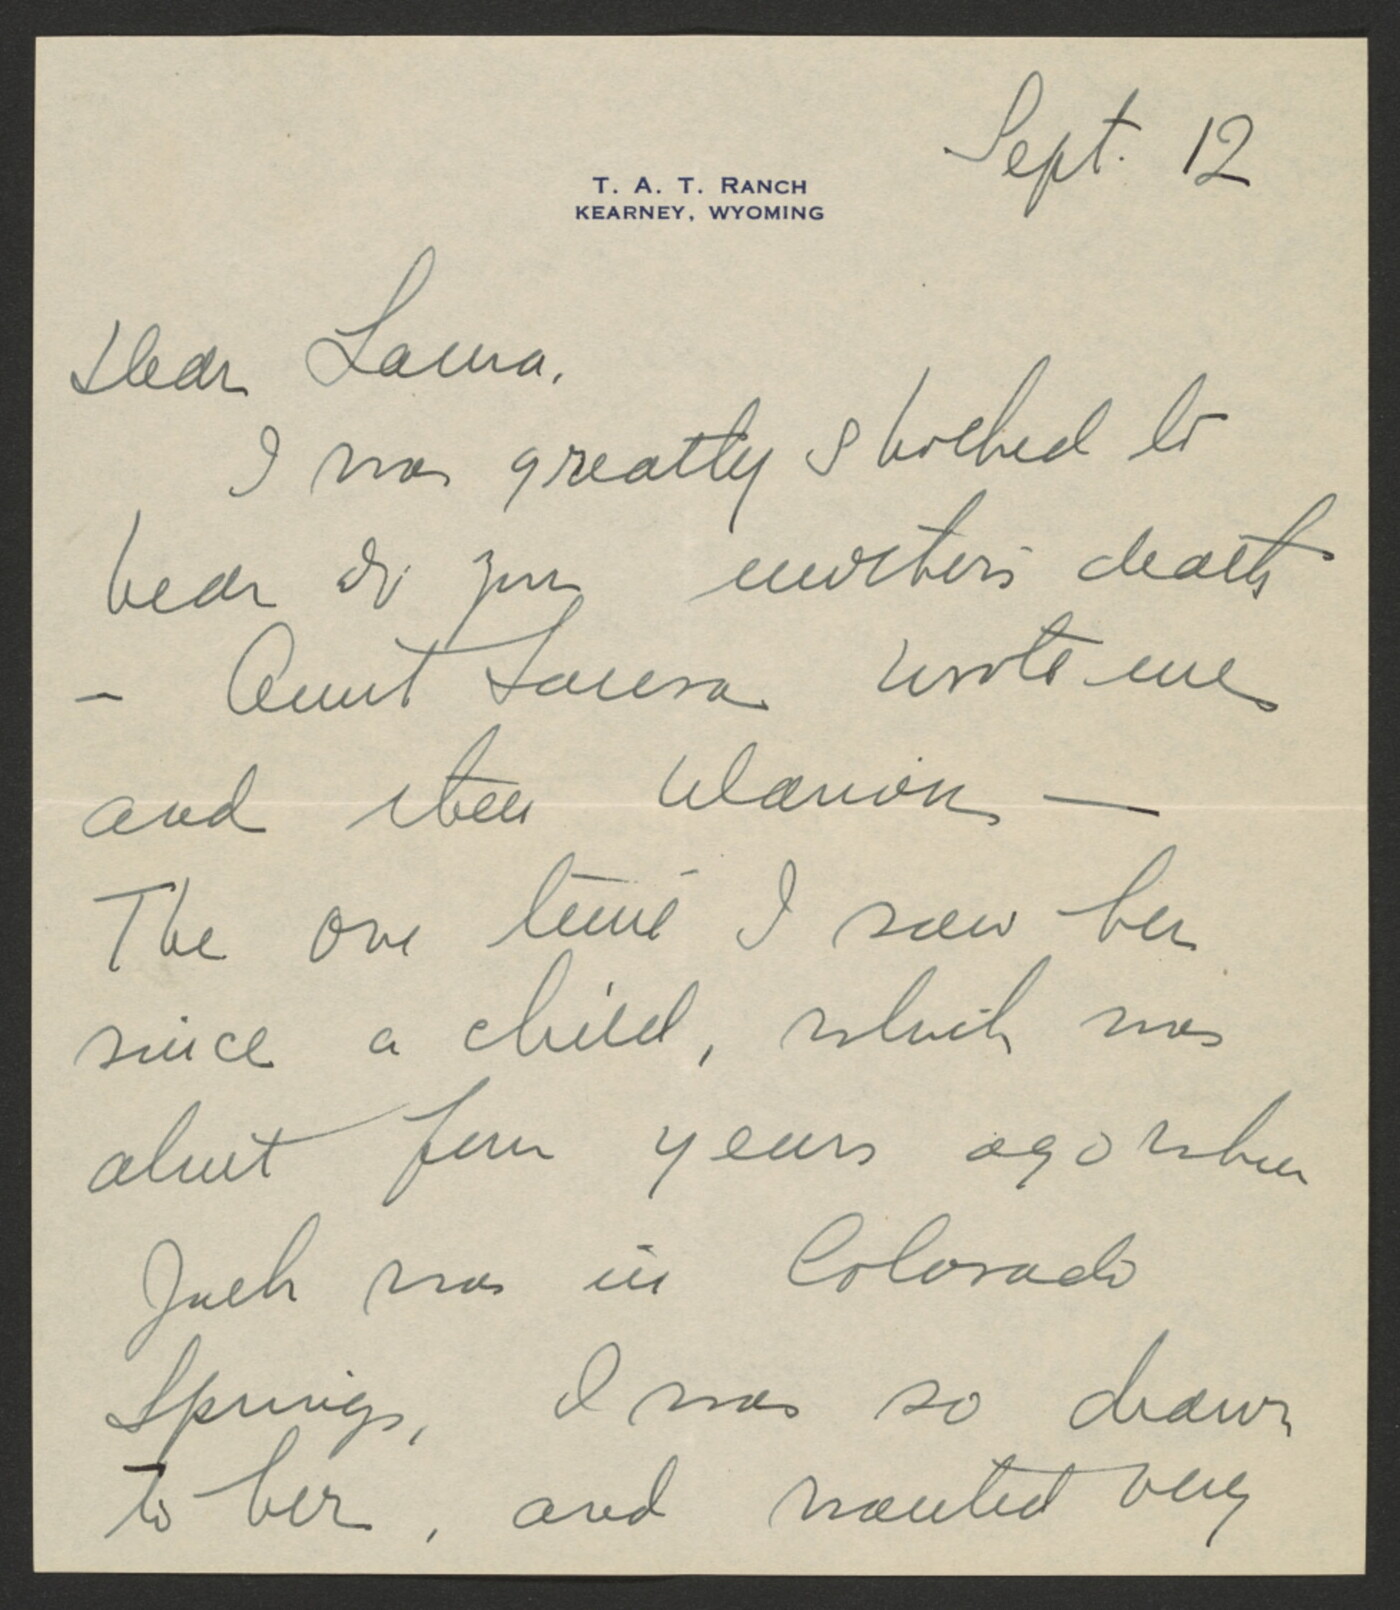 Sept. 12
T. A. T. RANCH
KEARNEY, WYOMING
Dear Laura,
I was greatly shocked to
hear of your mother's death
— Aunt Laura wrote me
and then Marion —
The one time I saw her
since a child, which was
about four years ago when
Jack was in Colorado
Springs, I was so drawn
to her, and wanted very